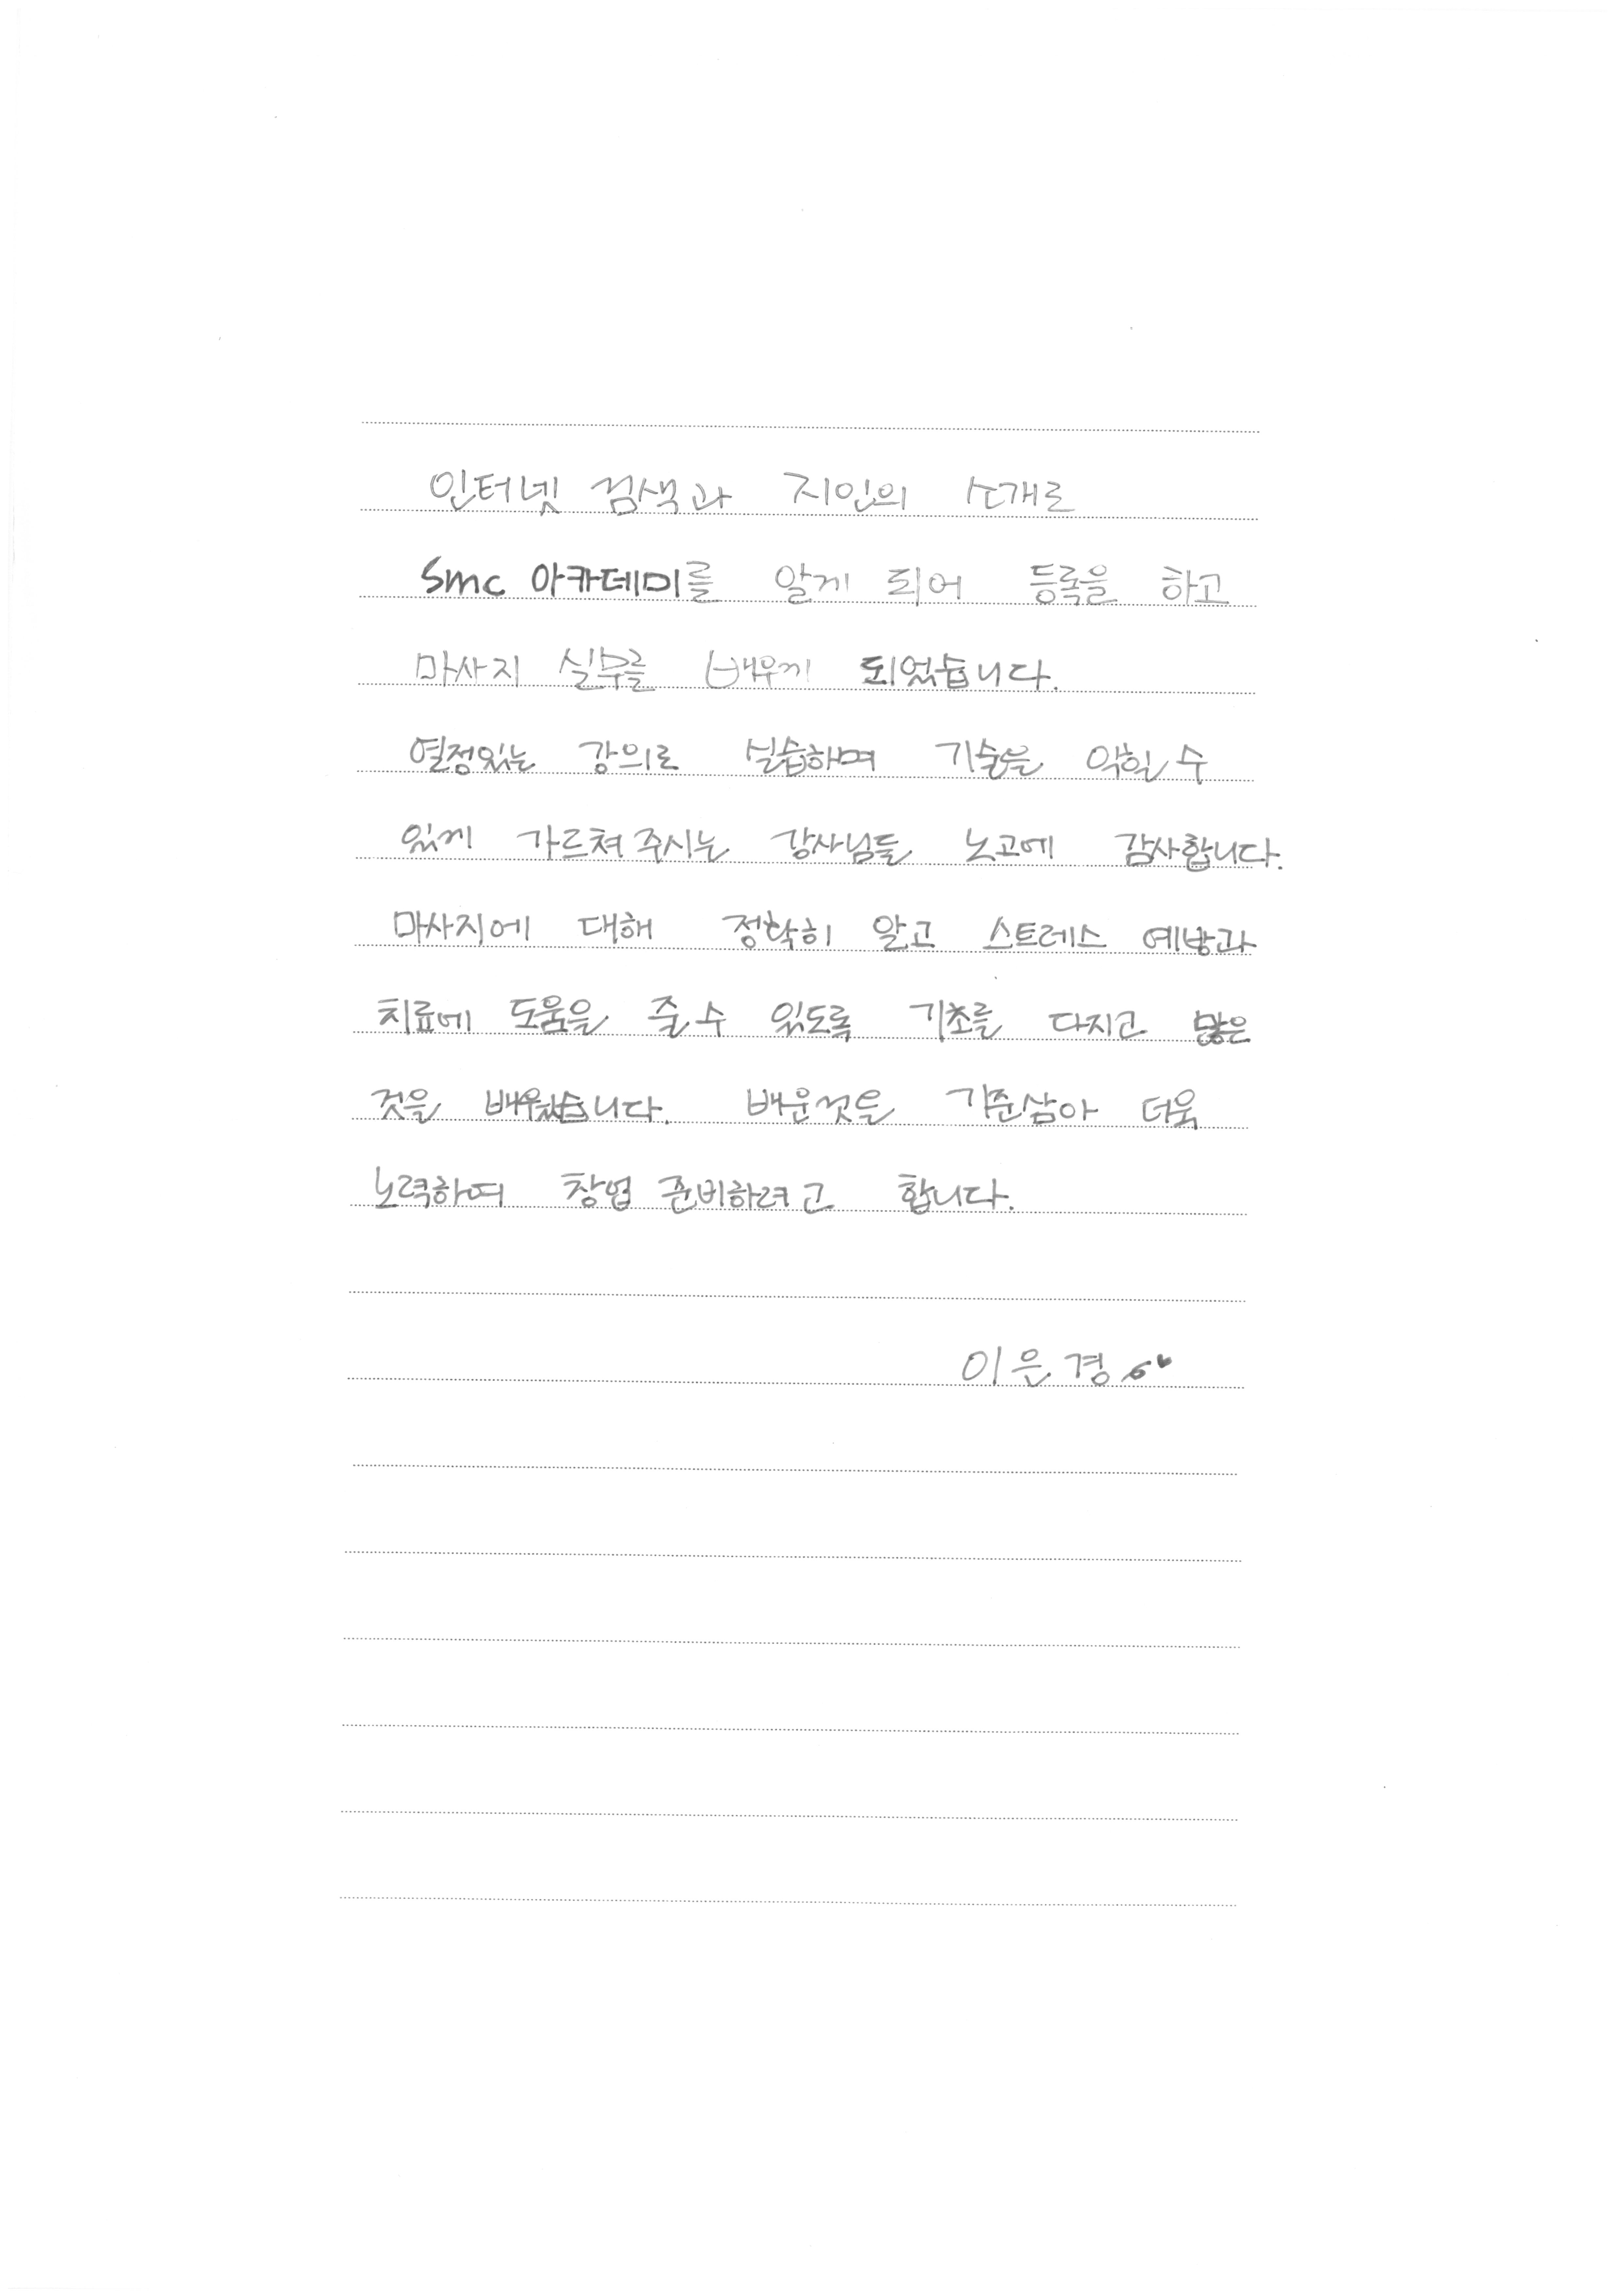 인터넷 검색과 지인의 소개로
Smc 아카데미를 알게 되어 등록을 하고
마사지 실무를 배우게 되었습니다.
열정있는 강의로 실습하며 기술을 익힐 수
있게 가르쳐 주시는 강사님들 노고에 감사합니다.
마사지에 대해 정확히 알고 스트레스 예방과
치료에 도움을 줄 수 있도록 기초를 다지고 많은
것을 배웠습니다. 배운것을 기준삼아 더욱
노력하여 창업 준비하려고 합니다.
이은경